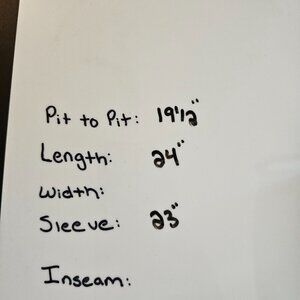 Pit to Pit: 19 1/2"
Length: 24"
width:
Sleeve: 23"
Inseam: